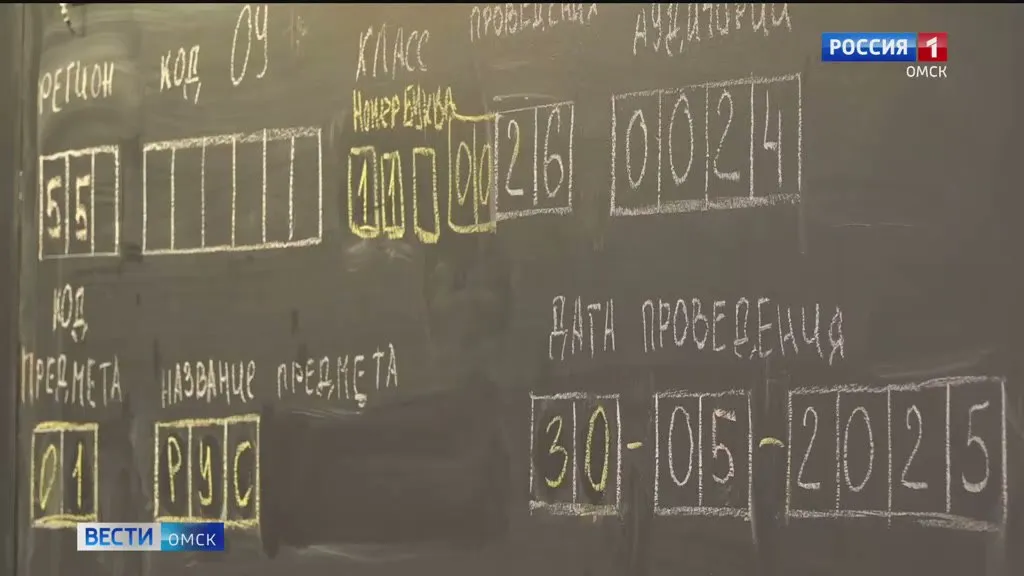 ПРОВЕДЕНИЯ АУДИТОРИИ
РЕГИОН КОД ОУ КЛАСС
НОМЕР БУКВА
55 11 0026 0024
КОД
ПРЕДМЕТА НАЗВАНИЕ ПРЕДМЕТА
01 РУС
ДАТА ПРОВЕДЕНИЯ
30-05-2025
РОССИЯ 1
ОМСК
ВЕСТИ ОМСК